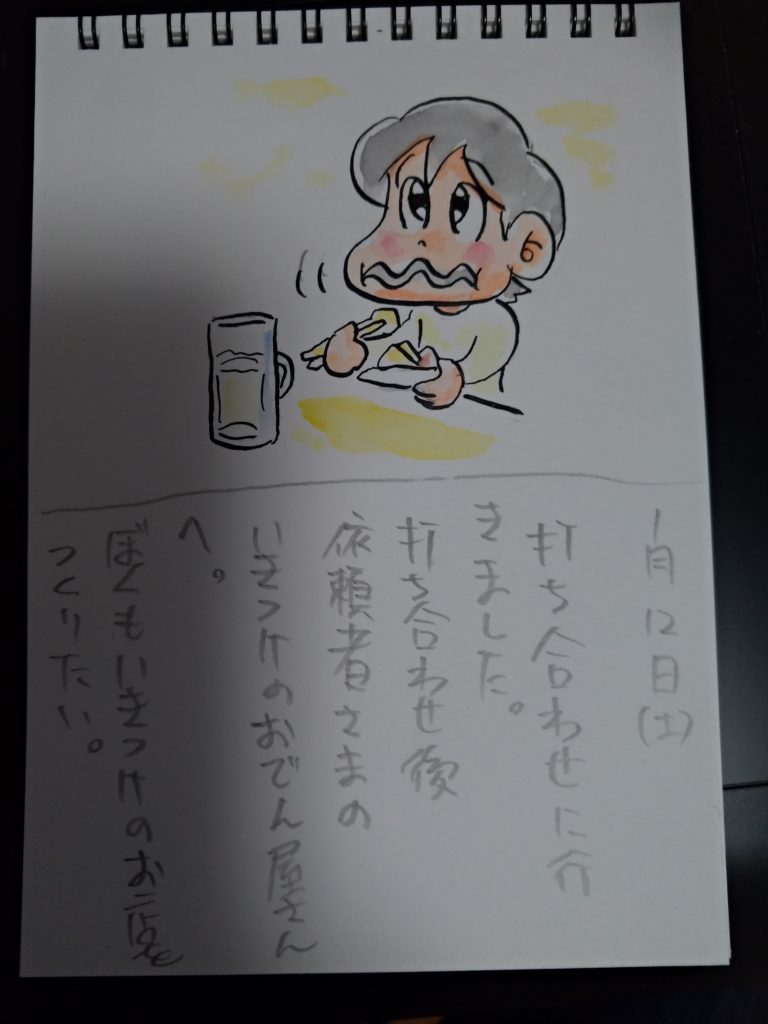 1月12日(土)
打ち合わせに行
きました。
打ち合わせ後
依頼者さまの
いきつけのおでん屋さん
へ。
ぼくもいきつけのお店を
つくりたい。